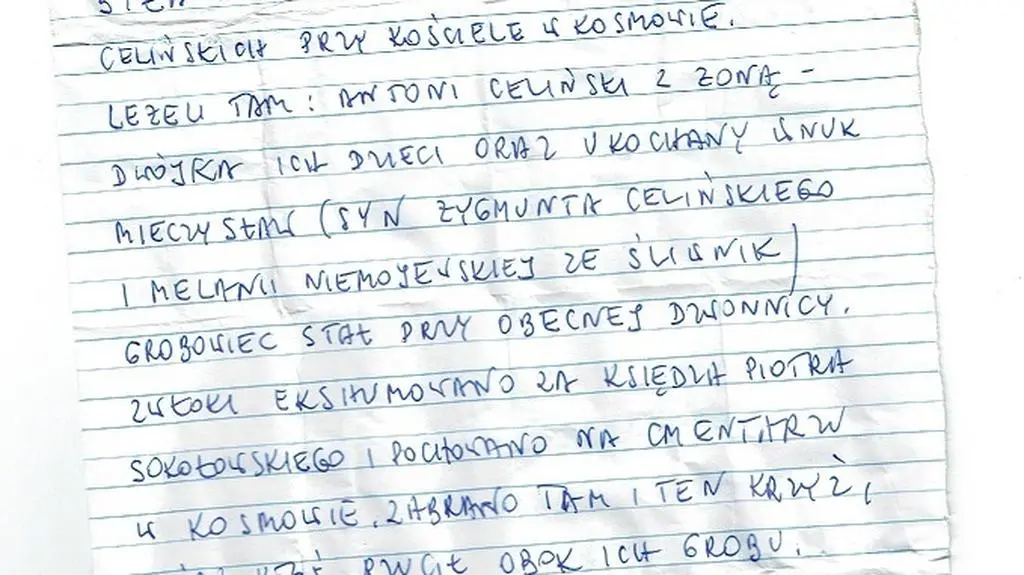 CELIŃSKICH PRZY KOŚCIELE W KOSMOWIE.
LEŻELI TAM: ANTONI CELIŃSKI Z ŻONĄ -
DWÓJKA ICH DZIECI ORAZ UKOCHANY WNUK
MIECZYSŁAW (SYN ZYGMUNTA CELIŃSKIEGO
I MELANII NIEMOJEWSKIEJ ZE ŚLIWNIK)
GROBOWIEC STAŁ PRZY OBECNEJ DZWONNICY.
ZWŁOKI EKSHUMOWANO ZA KSIĘDZA PIOTRA
SOKOŁOWSKIEGO I POCHOWANO NA CMENTARZU
W KOSMOWIE. ZABRANO TAM I TEN KRZYŻ,
OBOK ICH GROBU.